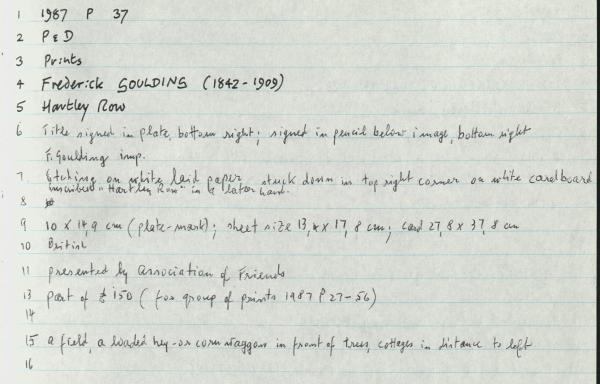 1 1987 P 37
2 P & D
3 Prints
4 Frederick GOULDING (1842-1909)
5 Hartley Row
6 Title signed in plate, bottom right; signed in pencil below image, bottom right
F. Goulding imp.
7 Etching on white laid paper stuck down in top right corner on white cardboard
inscribed "Hartley Row" in a later hand.
8
9 10 x 14,9 cm (plate-mark); sheet size 13,4 x 17,8 cm; card 27,8 x 37,8 cm
10 British
11 presented by Association of Friends
13 part of £150 (for group of prints 1987 P 27-56)
14
15 a field, a loaded hey-or corn waggon in front of trees, cottages in distance to left
16